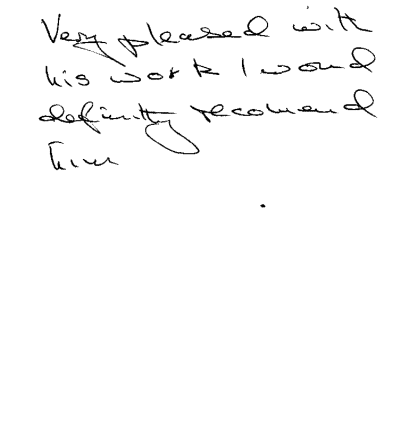 Very pleased with
his work I woud
definitly recomend
him